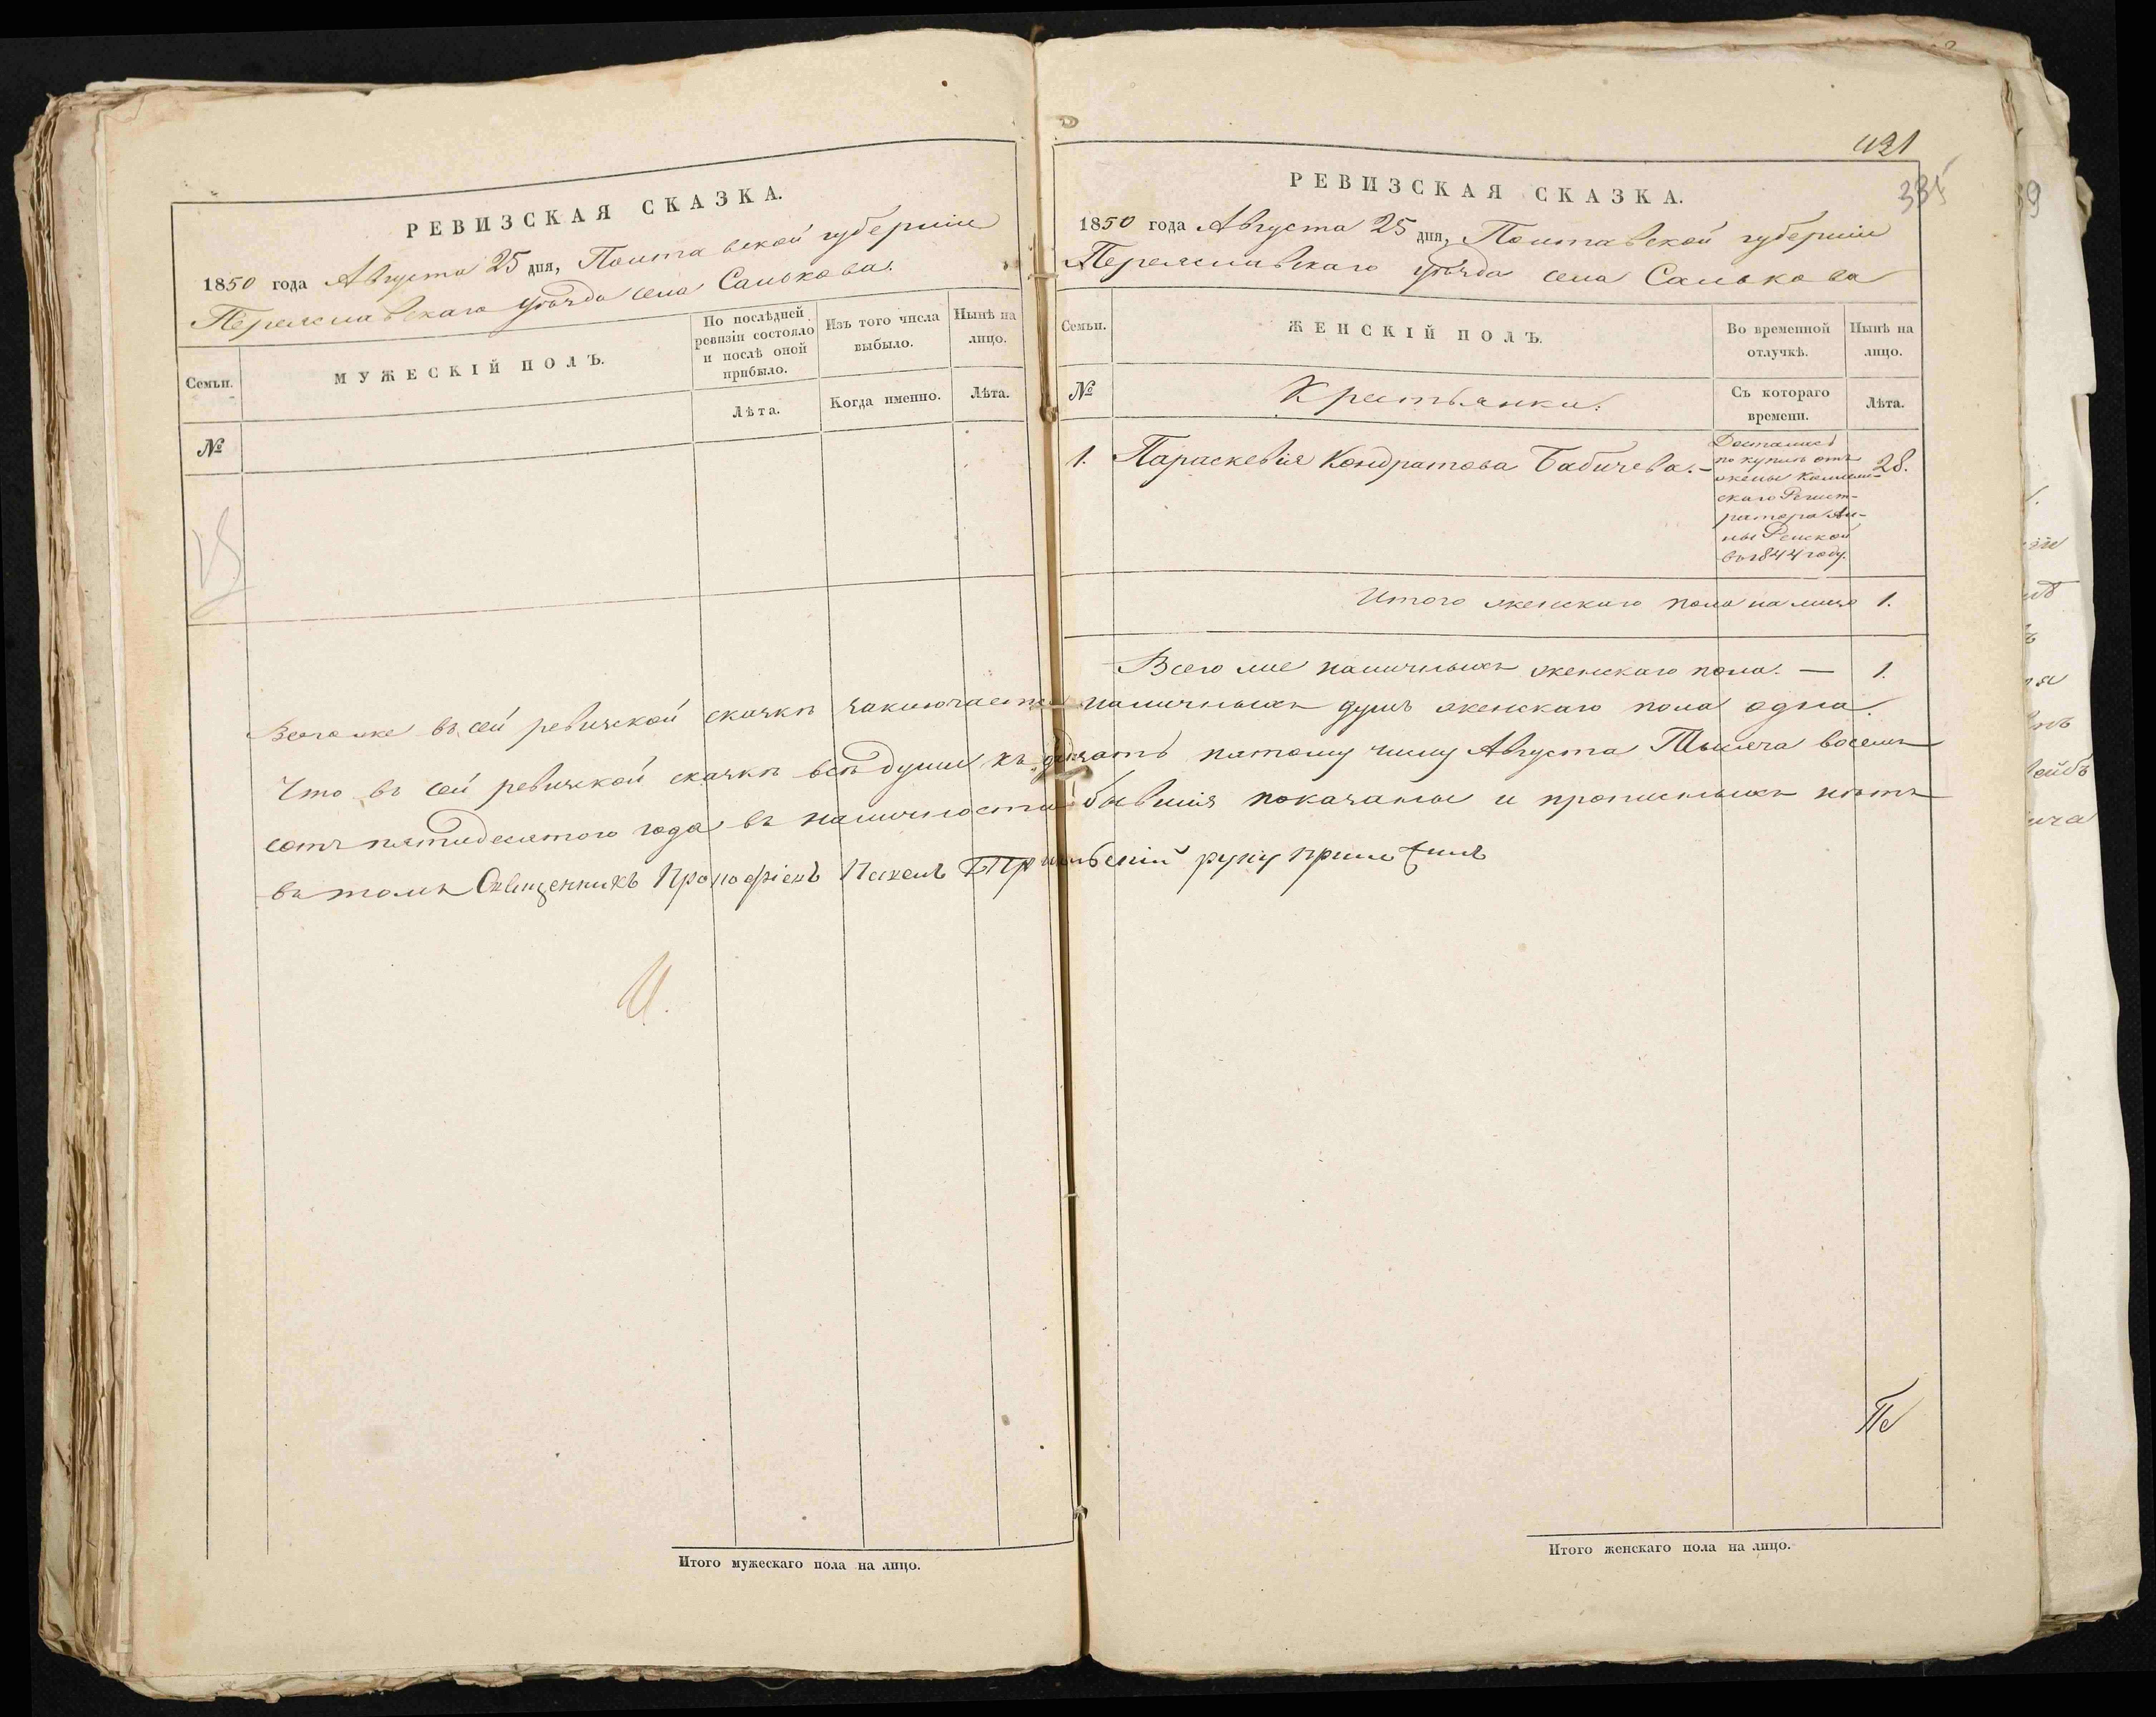 РЕВИЗСКАЯ СКАЗКА.
1850 года Августа 25 дня, Полтавской губернiи
Переяславскаго уѣзда села Салькова.
Семьи.
МУЖЕСКІЙ ПОЛЪ.
По послѣдней
ревизіи состояло
и послѣ оной
прибыло.
Изъ того числа
выбыло.
Нынѣ на
лицо.
Лѣта.
Когда именно.
Лѣта.
№
421
335
РЕВИЗСКАЯ СКАЗКА.
1850 года Августа 25 дня, Полтавской губернiи
Переяславскаго уѣзда села Салькова
Семьи.
ЖЕНСКІЙ ПОЛЪ.
Во временной
отлучкѣ.
Нынѣ на
лицо.
№
Крестьянки.
Съ котораго
времени.
Лѣта.
1. Параскевія Кондратова Бабичева. — 28.
Досталась
по куплѣ отъ
жены Коллеж-
скаго Регист-
ратора Ан-
ны
въ 1844 году.
Итого женскаго пола на лицо 1.
Всего мне наличныхъ женскаго пола. — 1.
Всего же въ сей ревизской сказкѣ заключается наличныхъ душъ женскаго пола одна.
Что въ сей ревизской сказкѣ всѣ души къ двадцать пятому числу Августа Тысяча восемь
сотъ пятидесятого года въ наличности бывшія показаны и прописныхъ нѣтъ
въ томъ Священникъ руку приложилъ
Итого мужескаго пола на лицо.
Итого женскаго пола на лицо.